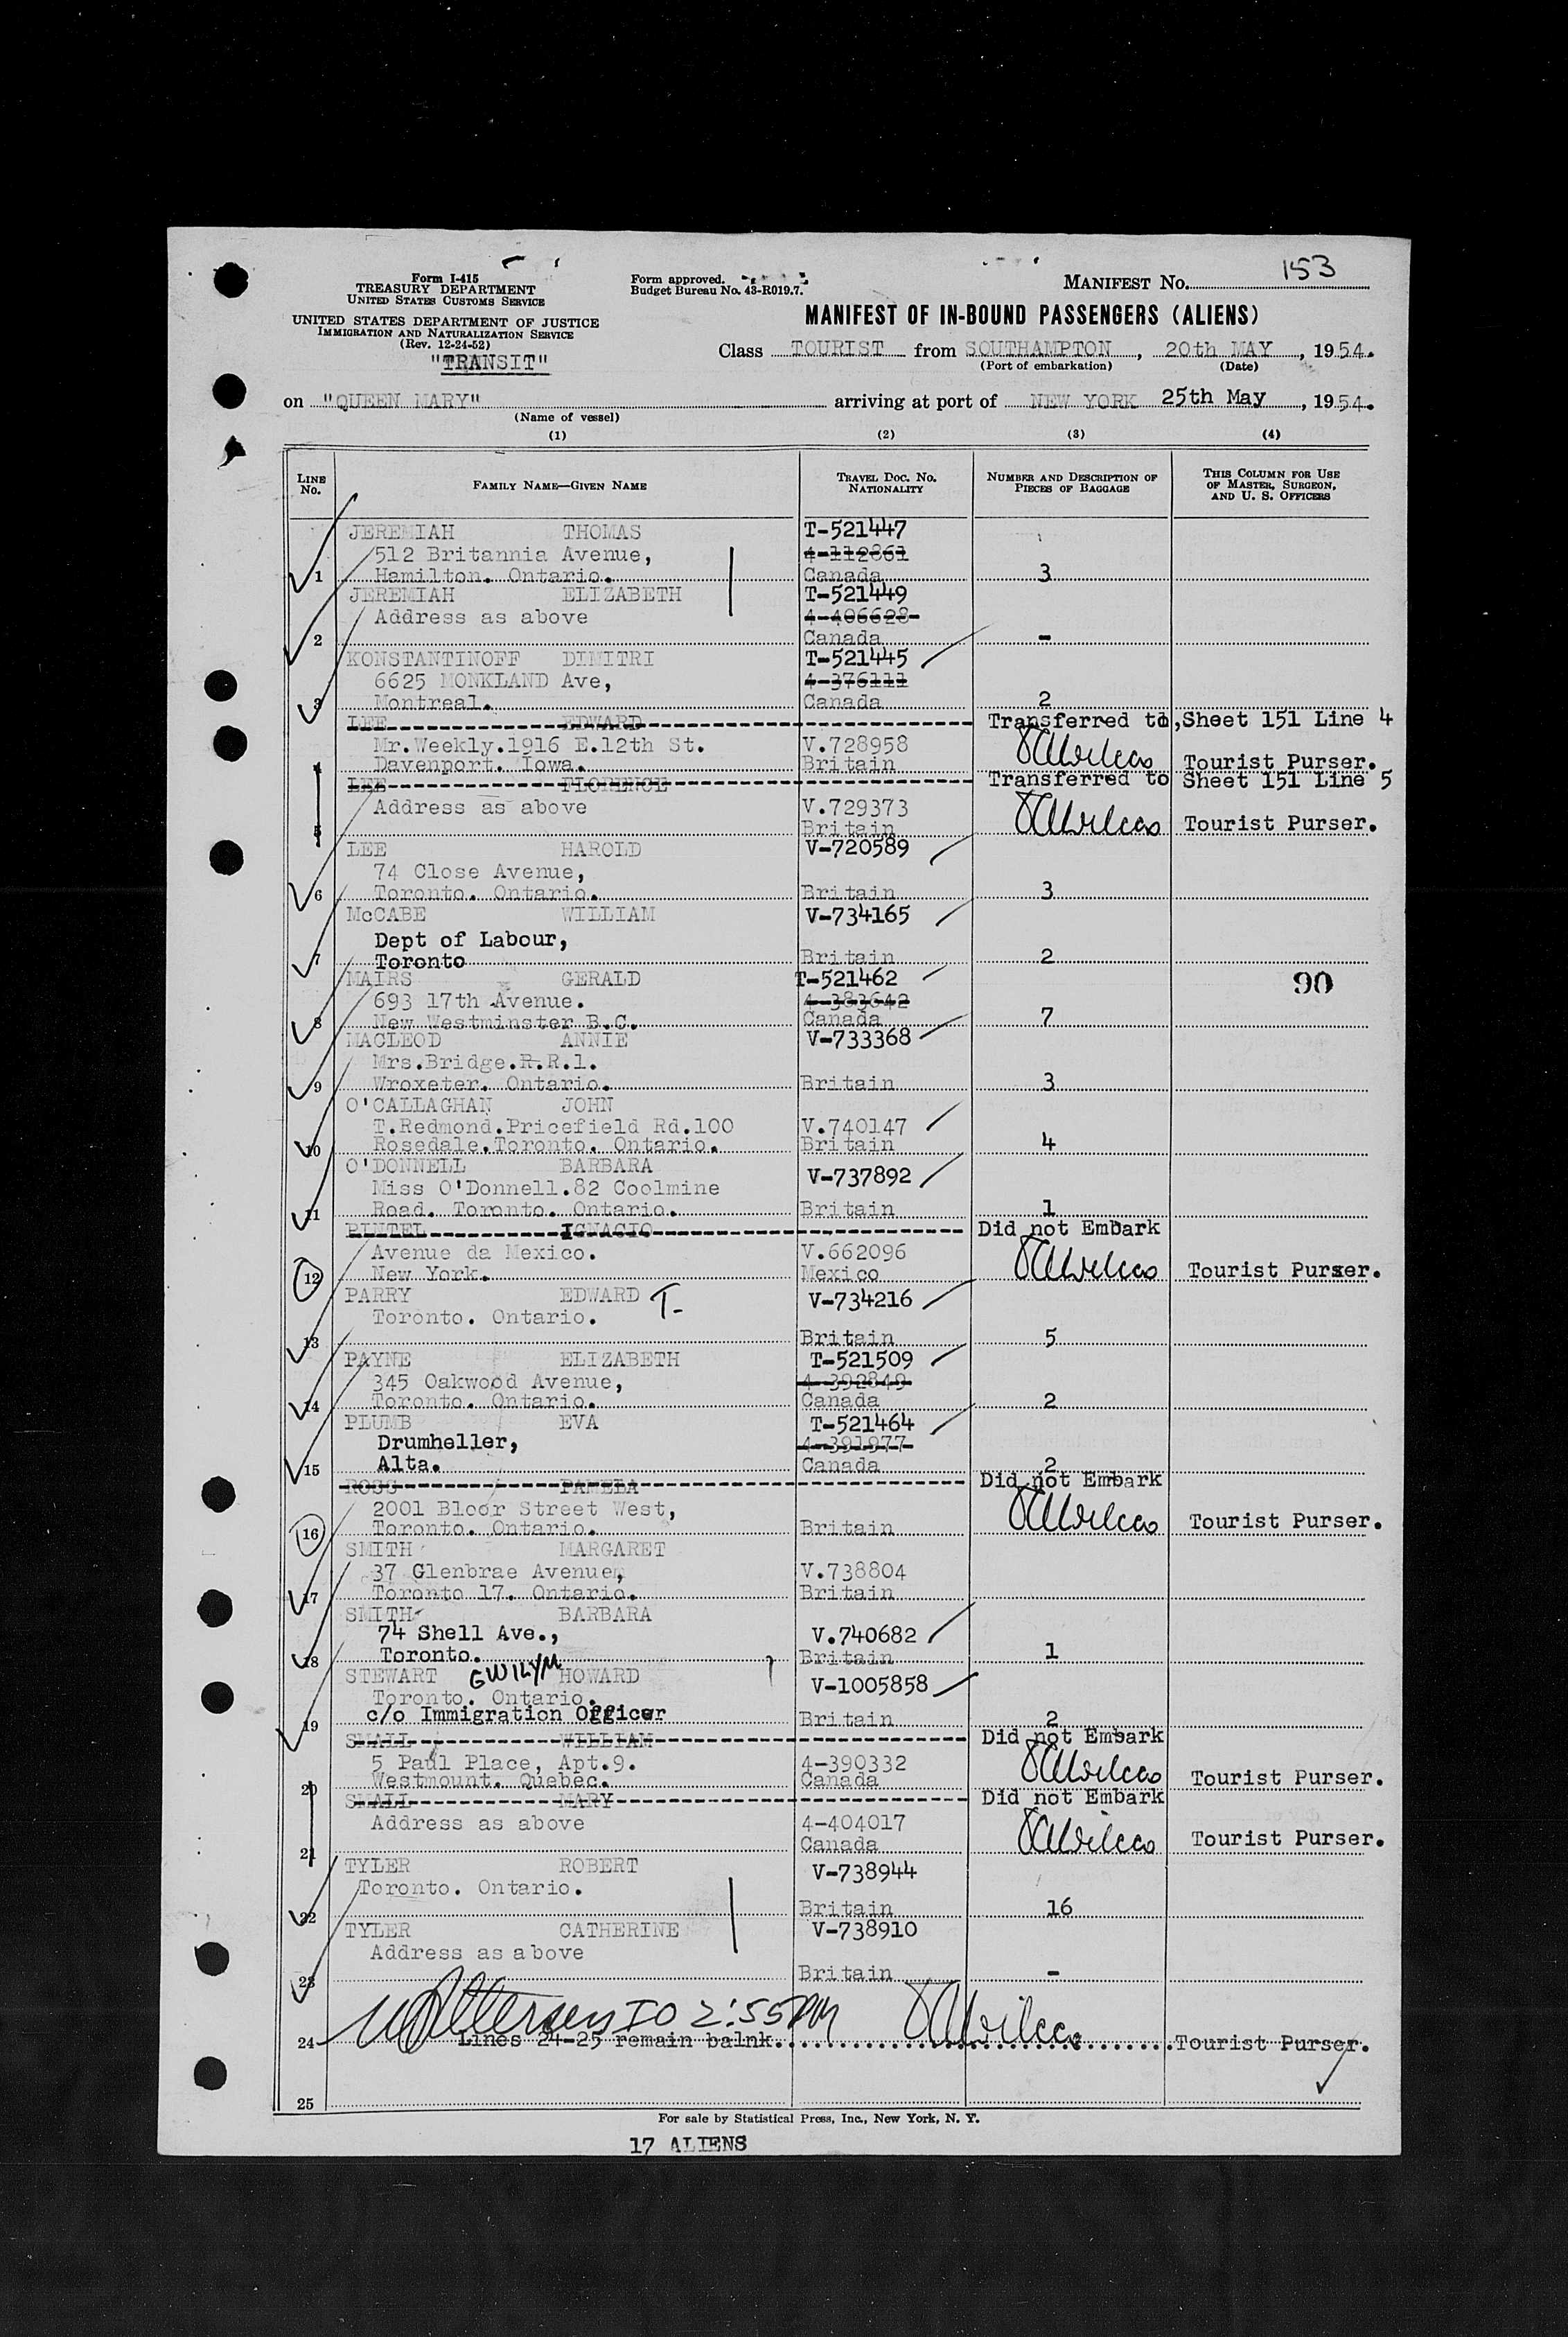 Form I-415
TREASURY DEPARTMENT
UNITED STATES CUSTOMS SERVICE
UNITED STATES DEPARTMENT OF JUSTICE
IMMIGRATION AND NATURALIZATION SERVICE
(Rev. 12-24-52)
"TRANSIT"
Form approved.
Budget Bureau No. 43-R019.7.
MANIFEST No. 153
MANIFEST OF IN-BOUND PASSENGERS (ALIENS)
Class TOURIST from SOUTHAMPTON, 20th MAY, 1954.
(Port of embarkation) (Date)
on "QUEEN MARY" arriving at port of NEW YORK 25th May, 1954.
(Name of vessel)
(1) (2) (3) (4)
LINE No. FAMILY NAME—GIVEN NAME TRAVEL DOC. No. NATIONALITY NUMBER AND DESCRIPTION OF PIECES OF BAGGAGE THIS COLUMN FOR USE OF MASTER, SURGEON, AND U. S. OFFICERS
JEREMIAH THOMAS T-521447
512 Britannia Avenue, 4-112861
1 Hamilton. Ontario. Canada 3
JEREMIAH ELIZABETH T-521449
Address as above 4-406628
2 Canada -
KONSTANTINOFF DIMITRI T-521445
6625 MONKLAND Ave, 4-376111
3 Montreal. Canada 2
LEE EDWARD Transferred to, Sheet 151 Line 4
Mr.Weekly.1916 E.12th St. V.728958
4 Davenport. Iowa. Britain Tourist Purser.
LEE FLORENCE Transferred to Sheet 151 Line 5
Address as above V.729373
5 Britain Tourist Purser.
LEE HAROLD V-720589
74 Close Avenue,
6 Toronto. Ontario. Britain 3
McCABE WILLIAM V-734165
Dept of Labour,
7 Toronto Britain 2
MAIRS GERALD T-521462 90
693 17th Avenue. 4-383642
8 New Westminster B.C. Canada 7
MACLEOD ANNIE V-733368
Mrs.Bridge.R.R.1.
9 Wroxeter. Ontario. Britain 3
O'CALLAGHAN JOHN
T.Redmond.Pricefield Rd.100 V.740147
10 Rosedale.Toronto. Ontario. Britain 4
O'DONNELL BARBARA V-737892
Miss O'Donnell.82 Coolmine
11 Road. Toronto. Ontario. Britain 1
PINTEL IGNACIO Did not Embark
Avenue da Mexico. V.662096
12 New York. Mexico Tourist Purser.
PARRY EDWARD T- V-734216
Toronto. Ontario.
13 Britain 5
PAYNE ELIZABETH T-521509
345 Oakwood Avenue, 4-392849
14 Toronto. Ontario. Canada 2
PLUMB EVA T-521464
Drumheller, 4-391977
15 Alta. Canada 2
ROSS PAMELA Did not Embark
2001 Bloor Street West,
16 Toronto. Ontario. Britain Tourist Purser.
SMITH MARGARET
37 Glenbrae Avenue, V.738804
17 Toronto 17. Ontario. Britain
SMITH BARBARA
74 Shell Ave., V.740682
18 Toronto. Britain 1
STEWART GWILYM HOWARD V-1005858
Toronto. Ontario.
19 c/o Immigration Officer Britain 2
SMALL WILLIAM Did not Embark
5 Paul Place, Apt.9. 4-390332
20 Westmount. Quebec. Canada Tourist Purser.
SMALL MARY Did not Embark
Address as above 4-404017
21 Canada Tourist Purser.
TYLER ROBERT V-738944
Toronto. Ontario.
22 Britain 16
TYLER CATHERINE V-738910
Address as above
23 Britain -
IO 2:55PM
24 Lines 24-25 remain balnk. Tourist Purser.
25
For sale by Statistical Press, Inc., New York, N. Y.
17 ALIENS